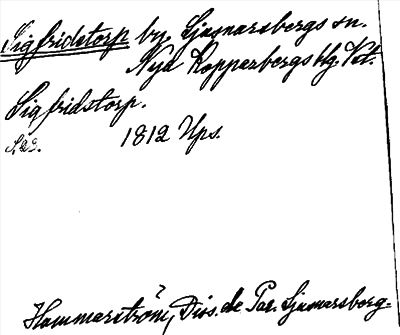 Sigfridstorp by, Ljusnarsbergs sn.
Nya Kopparbergs blg. Vst.
Sigfridstorp.
1812 Ups.
Hammarström, Diss. de Par. Ljusnarsberg.